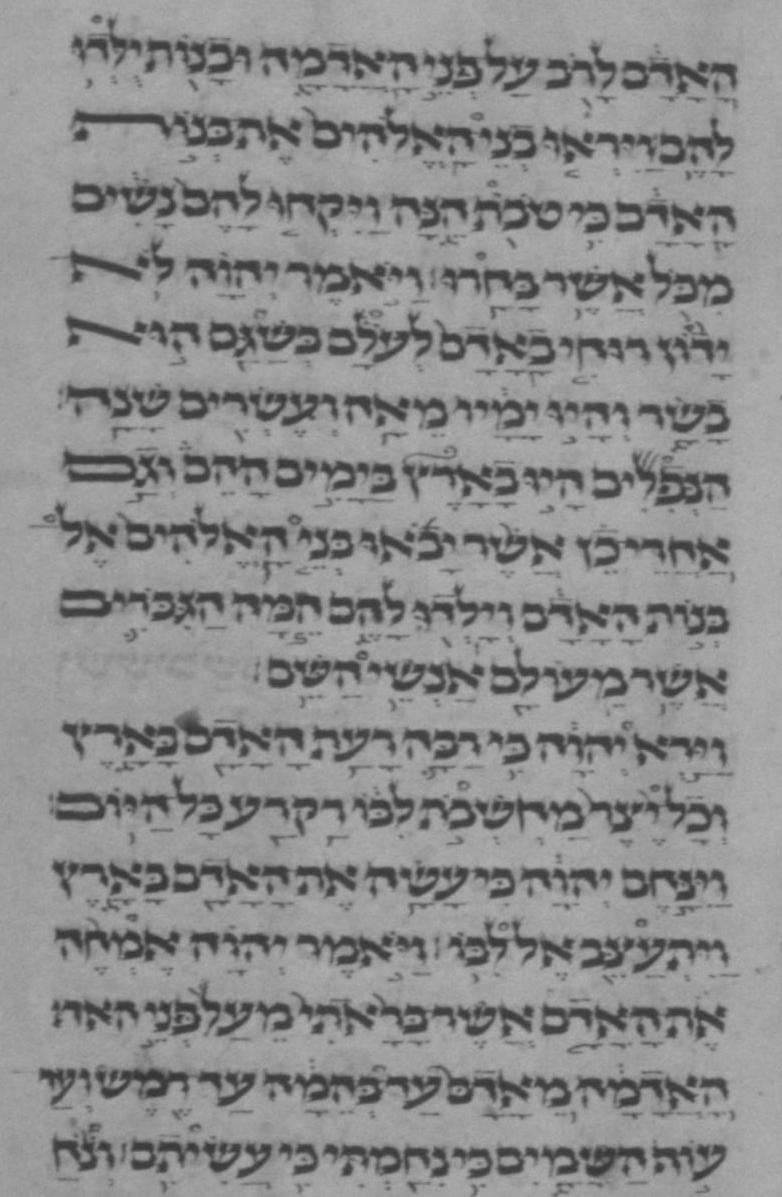 האדם לרב על פני האדמה ובנות ילדו
להם ויראו בני האלהים את בנות
האדם כי טבת הנה ויקחו להם נשים
מכל אשר בחרו ויאמר יהוה לא
ידון רוחי באדם לעלם בשגם הוא
בשר והיו ימיו מאה ועשרים שנה
הנפלים היו בארץ בימים ההם וגם
אחרי כן אשר יבאו בני האלהים אל
בנות האדם וילדו להם המה הגברים
אשר מעולם אנשי השם
וירא יהוה כי רבה רעת האדם בארץ
וכל יצר מחשבת לבו רק רע כל היום
וינחם יהוה כי עשה את האדם בארץ
ויתעצב אל לבו ויאמר יהוה אמחה
את האדם אשר בראתי מעל פני האד
האדמה מאדם עד בהמה עד רמש ועד
עוף השמים כי נחמתי כי עשיתם ונח